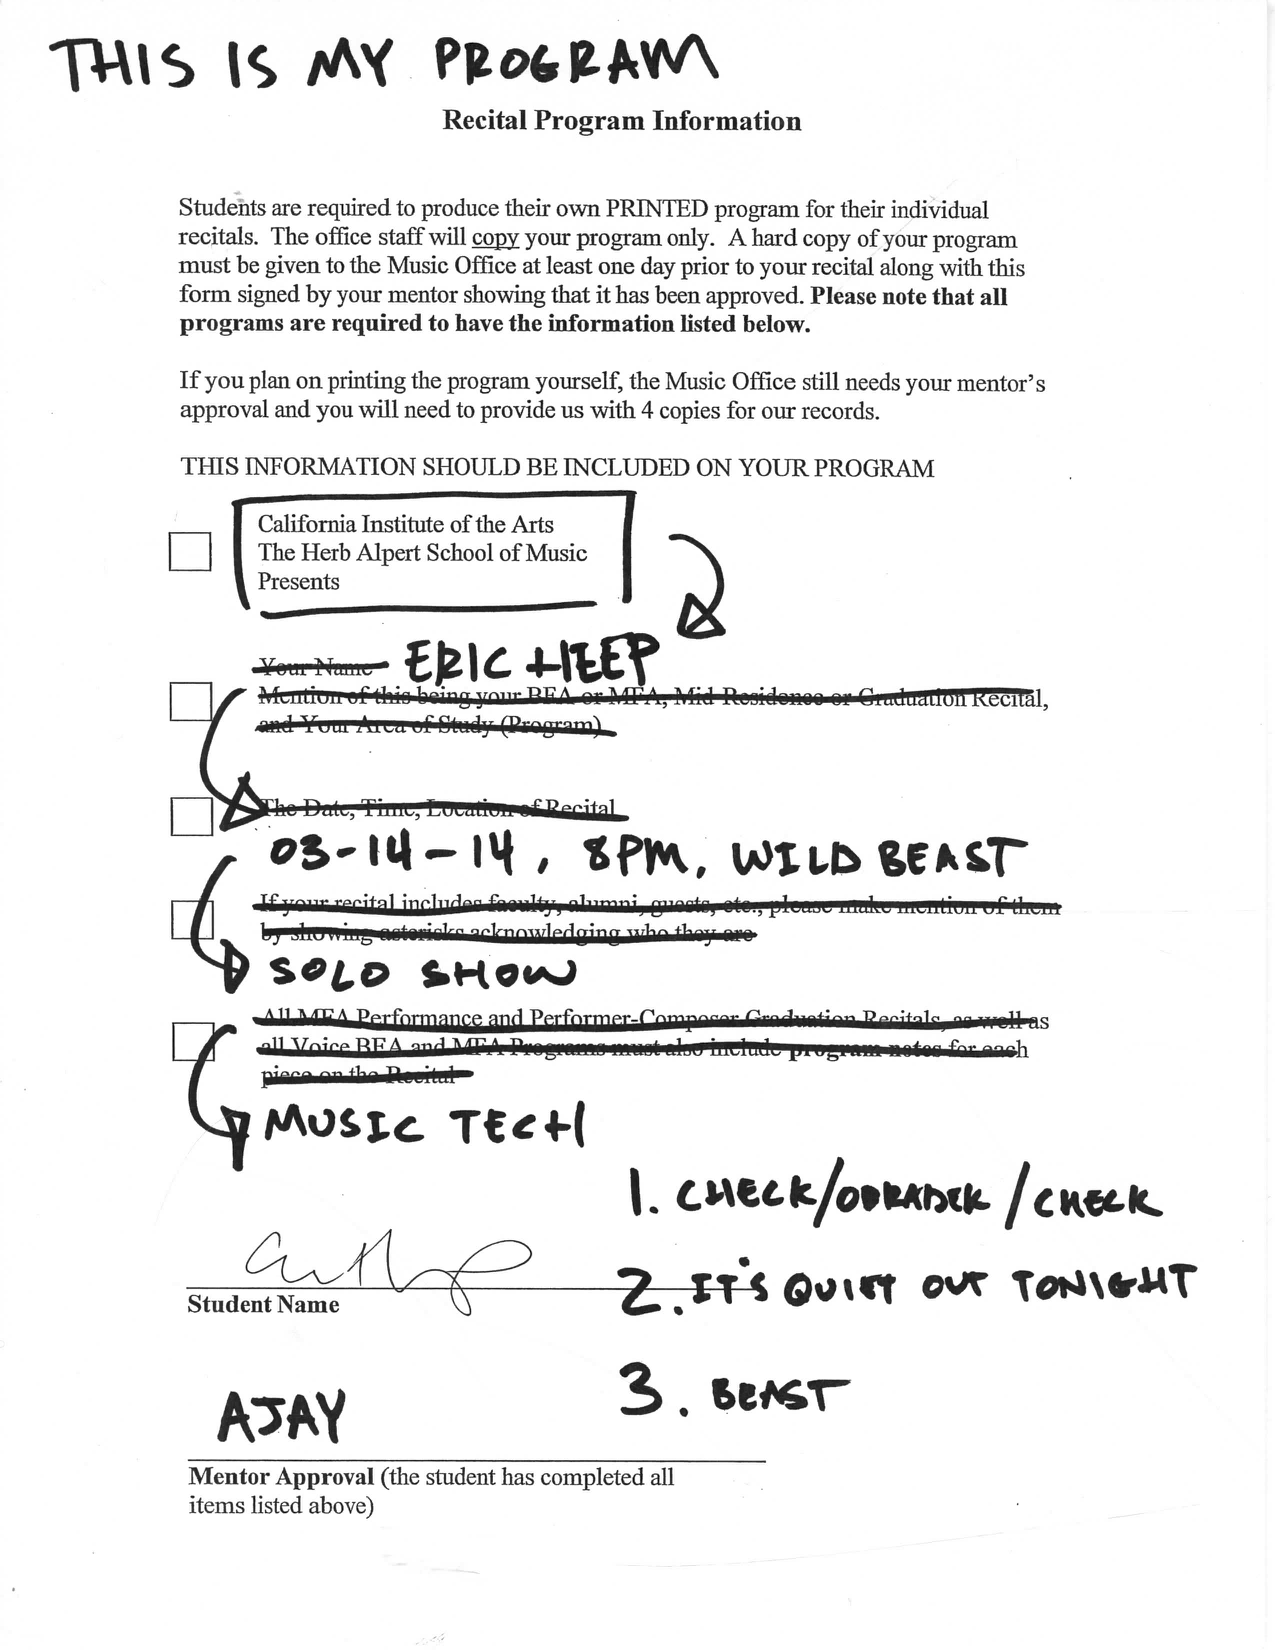 THIS IS MY PROGRAM
Recital Program Information
Students are required to produce their own PRINTED program for their individual
recitals. The office staff will copy your program only. A hard copy of your program
must be given to the Music Office at least one day prior to your recital along with this
form signed by your mentor showing that it has been approved. Please note that all
programs are required to have the information listed below.
If you plan on printing the program yourself, the Music Office still needs your mentor's
approval and you will need to provide us with 4 copies for our records.
THIS INFORMATION SHOULD BE INCLUDED ON YOUR PROGRAM
California Institute of the Arts
The Herb Alpert School of Music
Presents
Your Name ERIC HEEP
Mention of this being your BFA or MFA, Mid-Residence or Graduation Recital,
and Your Area of Study (Program)
The Date, Time, Location of Recital
03-14-14, 8PM, WILD BEAST
If your recital includes faculty, alumni, guests, etc., please make mention of them
by showing astericks acknowledging who they are
SOLO SHOW
All MFA Performance and Performer-Composer Graduation Recitals, as well as
all Voice BFA and MFA Programs must also include program notes for each
piece on the Recital
MUSIC TECH
1. CHECK/ODRADEK/CHECK
2. IT'S QUIET OUT TONIGHT
Student Name
3. BEAST
AJAY
Mentor Approval (the student has completed all
items listed above)